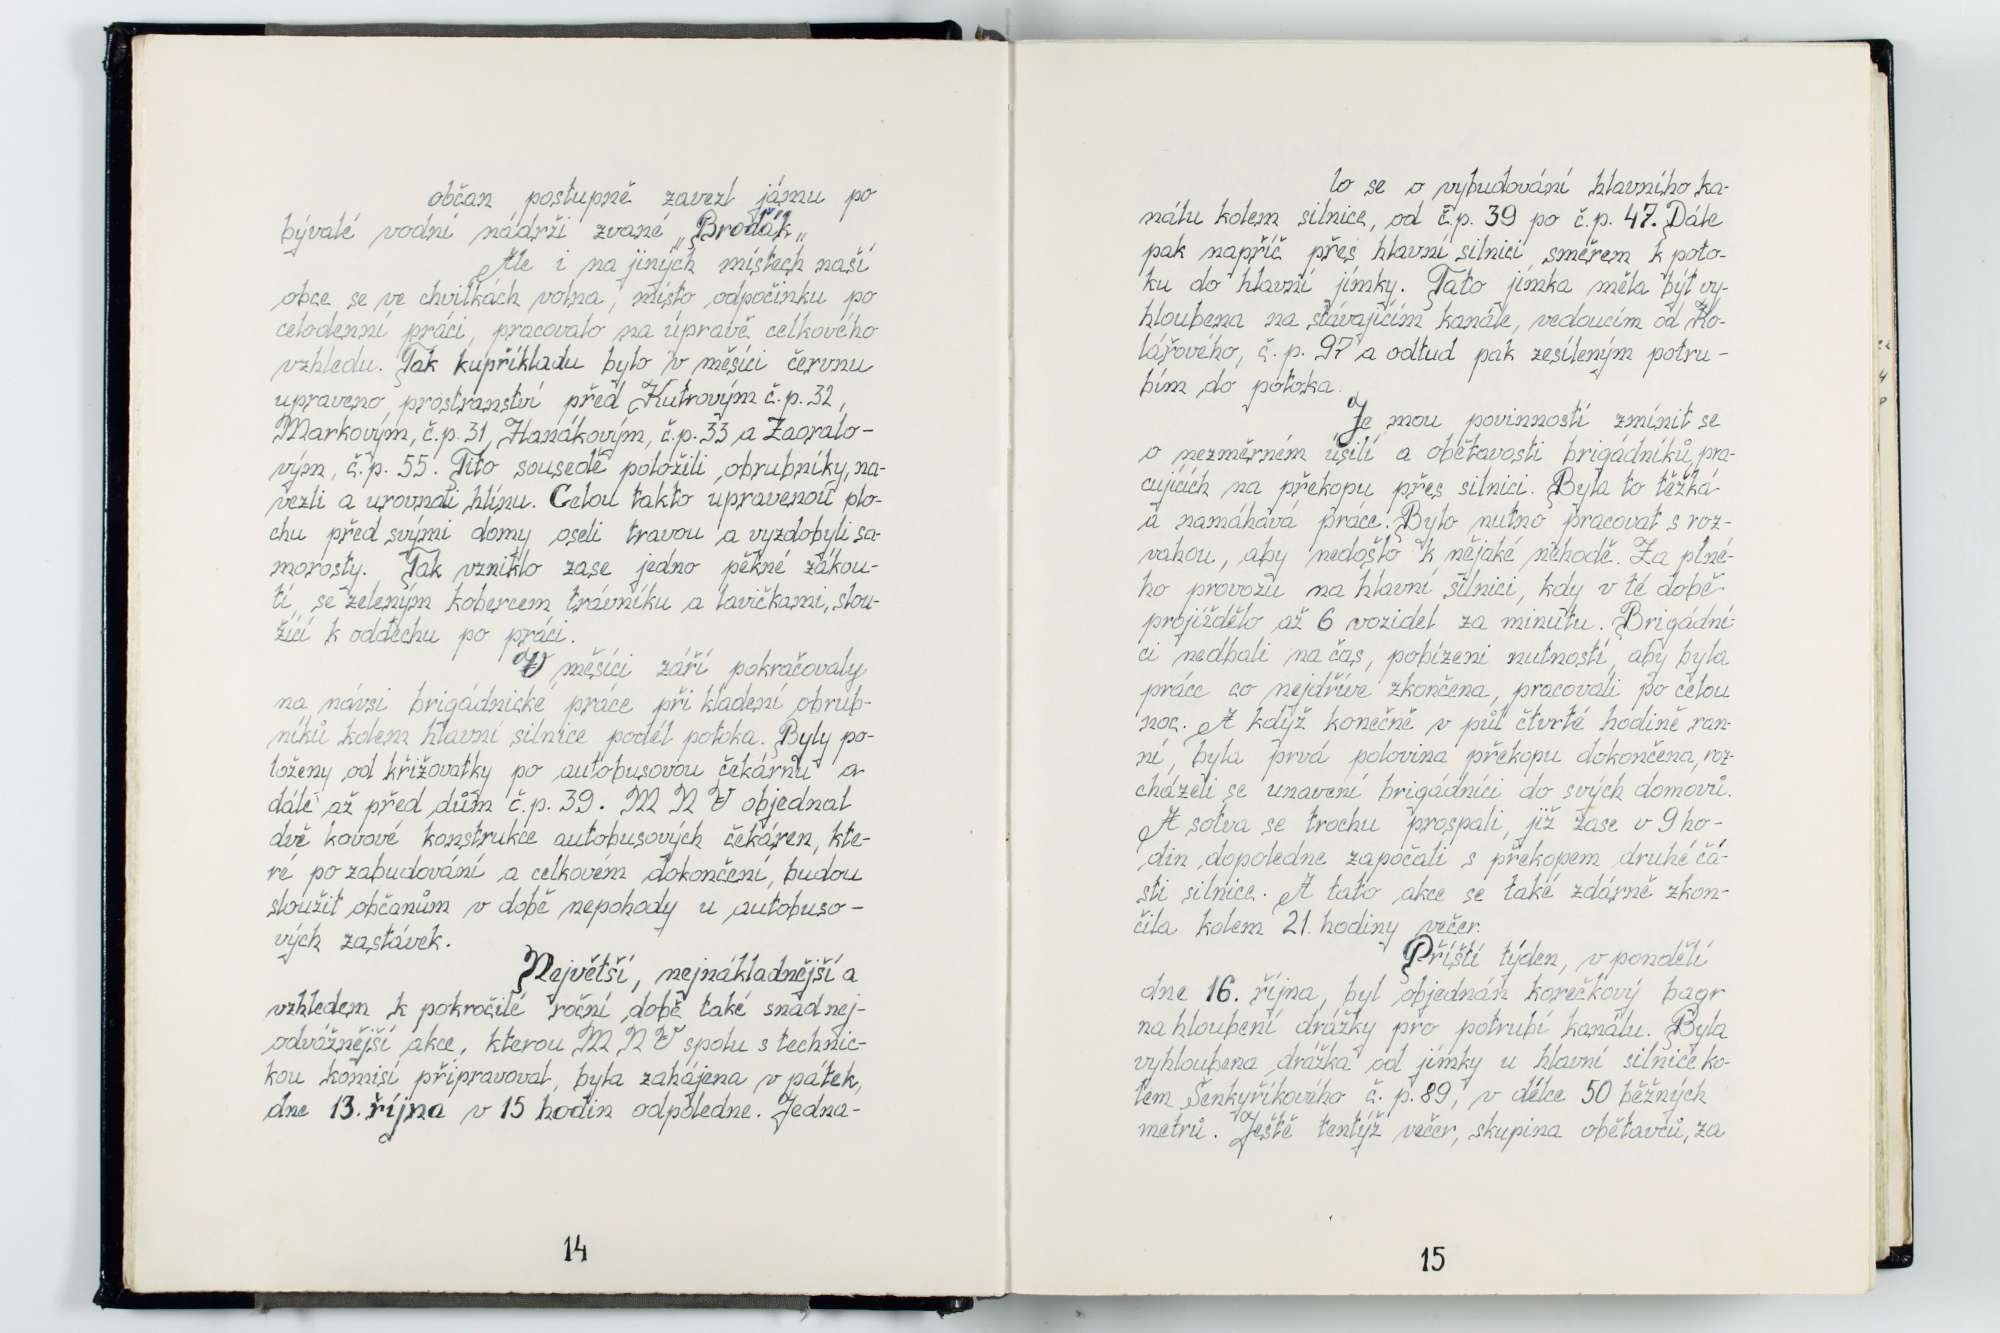 občan postupně zavezl jámu po
bývalé vodní nádrži zvané „Broďák„
Ale i na jiných místech naší
obce se ve chvilkách volna, místo odpočinku po
celodenní práci, pracovalo na úpravě celkového
vzhledu. Tak kupříkladu bylo v měsíci červnu
upraveno prostranství před Kutrovým č.p. 32,
Markovým, č.p. 31, Hanákovým, č.p. 33 a Zaoralo-
vým, č.p. 55. Tito sousedé položili obrubníky, na-
vezli a urovnali hlínu. Celou takto upravenou plo-
chu před svými domy oseli travou a vyzdobyli sa-
morosty. Tak vzniklo zase jedno pěkné zákou-
tí, se zeleným kobercem trávníku a lavičkami, slou-
žící k oddechu po práci.
V měsíci září pokračovaly
na návsi brigádnické práce při kladení obrub-
níků kolem hlavní silnice podél potoka. Byly po-
loženy od křižovatky po autobusovou čekárnu a
dále až před dům č.p. 39. M N V objednal
dvě kovové konstrukce autobusových čekáren, kte-
ré po zabudování a celkovém dokončení, budou
sloužit občanům v době nepohody u autobuso-
vých zastávek.
Největší, nejnákladnější a
vzhledem k pokročilé roční době také snad nej-
odvážnější akce, kterou M N V spolu s technic-
kou komisí připravoval, byla zahájena v pátek,
dne 13. října v 15 hodin odpoledne. Jedna-
14
lo se o vybudování hlavního ka-
nálu kolem silnice, od č.p. 39 po č.p. 47. Dále
pak napříč přes hlavní silnici směrem k poto-
ku do hlavní jímky. Tato jímka měla být vy-
hloubena na stávajícím kanále, vedoucím od Ko-
lářového, č.p. 97 a odtud pak zesíleným potru-
bím do potoka.
Je mou povinností zmínit se
o nezměrném úsilí a obětavosti brigádníků, pra-
cujících na překopu přes silnici. Byla to těžká
a namáhavá práce. Bylo nutno pracovat s roz-
vahou, aby nedošlo k nějaké nehodě. Za plné-
ho provozu na hlavní silnici, kdy v té době
projíždělo až 6 vozidel za minutu. Brigádní-
ci nedbali na čas, pobízeni nutností, aby byla
práce co nejdříve zkončena, pracovali po celou
noc. A když konečně v půl čtvrté hodině ran-
ní, byla prvá polovina překopu dokončena, roz-
cházeli se unavení brigádníci do svých domovů.
A sotva se trochu prospali, již zase v 9 ho-
din dopoledne započali s překopem druhé čá-
sti silnice. A tato akce se také zdárně zkon-
čila kolem 21. hodiny večer.
Příští týden, v pondělí
dne 16. října, byl objednán korečkový bagr
na hloubení drážky pro potrubí kanálu. Byla
vyhloubena drážka od jímky u hlavní silnice ko-
lem Šenkyříkového č.p. 89, v délce 50 běžných
metrů. Ještě tentýž večer, skupina obětavců, za
15